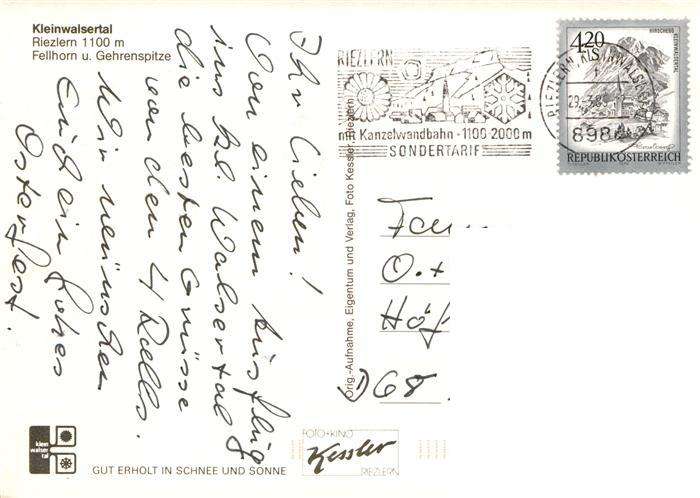 Kleinwalsertal
Riezlern 1100 m
Fellhorn u. Gehrenspitze
Ihr Lieben!
Von einem Ausflug
ins Kl. Walsertal
die besten Grüsse
von den 4 Ralls.
Wir wünschen
Euch ein frohes
Osterfest.
Orig.-Aufnahme, Eigentum und Verlag, Foto Kessler, Riezlern
RIEZLERN
mit Kanzelwandbahn - 1100-2000 m
SONDERTARIF
RIEZLERN, KLEINWALSERTAL
HIRSCHEGG
KLEINWALSERTAL
4.20
S
REPUBLIK ÖSTERREICH
Fam
O.
Höf
D 68
klein
walser
tal
GUT ERHOLT IN SCHNEE UND SONNE
FOTO+KINO
Kessler
RIEZLERN